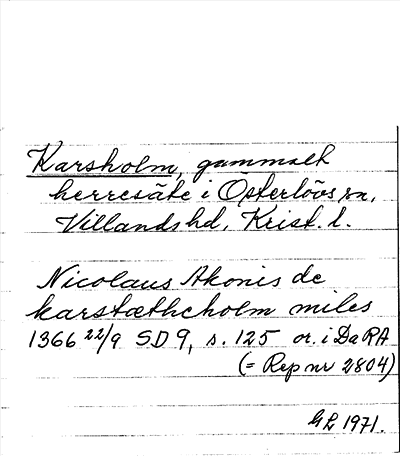 Karsholm, gammalt
herresäte i Österlövs sn,
Villands hd, Krist. l.
Nicolaus Akonis de
karstætheholm miles
1366 22/9 SD 9, s. 125 or. i DaRA
(= Rep nr 2804)
GL 1971.